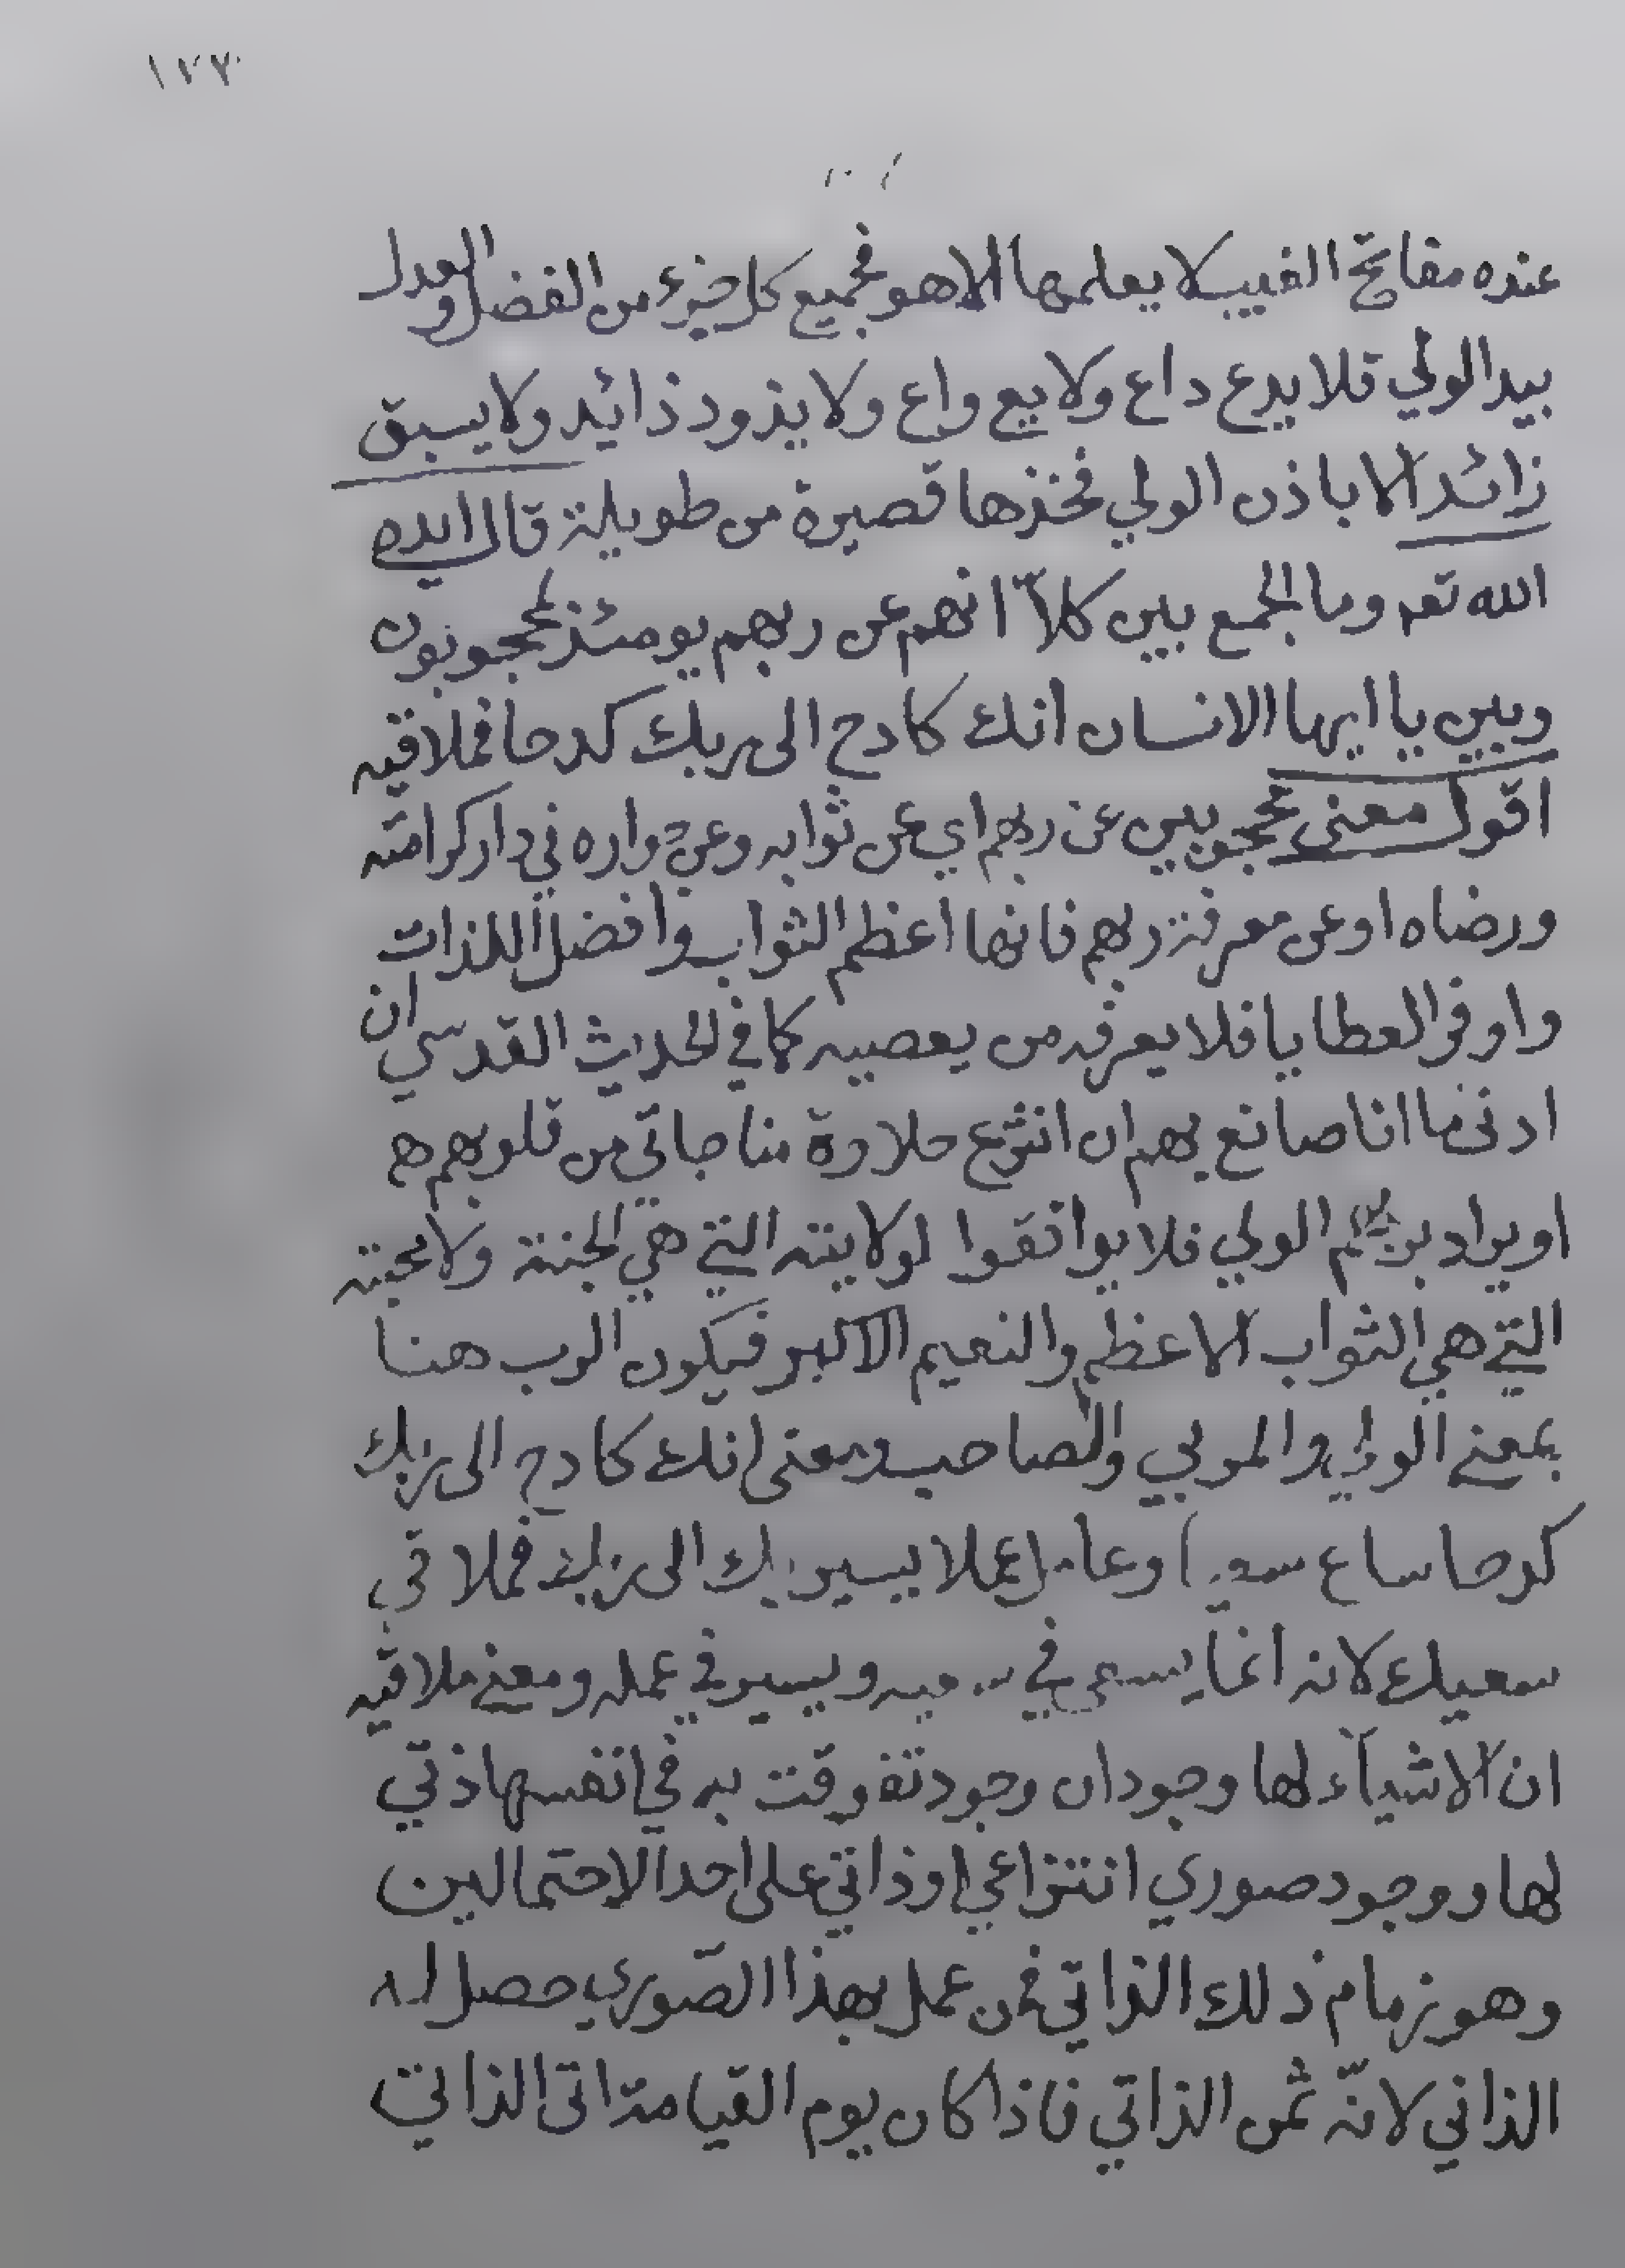 ١٧٧
عنده مفاتح الغيب لا يعلمها الا هو فجميع كل جزء من الفضل والعدل
بيد الولي فلا يدع داع ولا يع واع ولا يذود ذائد ولا يسبق
زائد الا باذن الولي فخذها قصيرة من طويلة قال ايده
الله تعه وما الجمع بين كلاّ انهم عن ربهم يومئذ لمحجوبون
وبين يا ايها الانسان انك كادح الى ربك كدحا فملاقيه
اقول معنى محجوبين عن ربهم اي عن ثوابه وعن جواره في دار كرامته
ورضاه او عن معرفة ربهم فانها اعظم الثواب وافضل اللذات
واوفر العطايا فلا يعرفه من يعصيه كما في الحديث القدسي ان
ادنى ما انا صانع بهم ان انتزع حلاوة مناجاتي من قلوبهم هـ
او يراد بربهم الولي فلا يوافقوا لولايته التي هي الجنة ولا محبته
التي هي الثواب الاعظم والنعيم الاكبر فيكون الرب هنا
بمعنى الولي والمربي والصاحب ومعنى انك كادح الى ربك
كدحا ساع وعامل عملا يسير بك الى ربك فملاقي
سعيك لانه انما يسعى في ويسير في عمله ومعنى ملاقيه
ان الاشيآء لها وجودان وجود تفوقت به في انفسها ذتي
لها ووجود صوري انتزاعي او ذاتي على احد الاحتمالين
وهو زمام ذلك الذاتي فمن عمل بهذا الصّوري حصل له
الذاتي لانّه ثمن الذاتي فاذا كان يوم القيامة اتى الذاتي